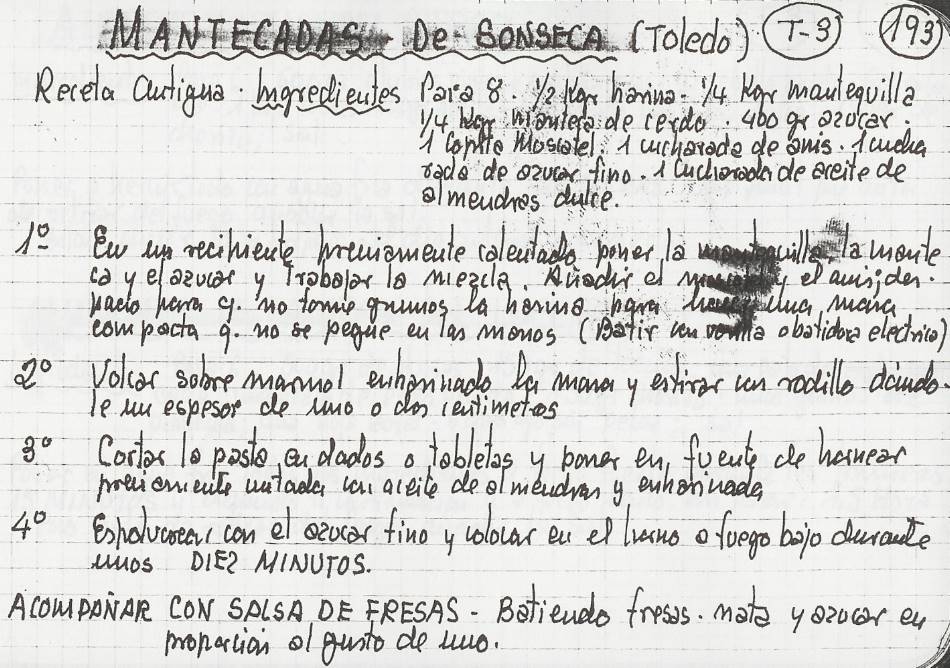 MANTECADAS De SONSECA (Toledo) T-3 193
Receta Antigua. Ingredientes Para 8. 1/2 Kgr harina - 1/4 Kgr mantequilla
1/4 Kgr Manteca de cerdo. 400 gr azucar.
1 Copita Moscatel. 1 cucharada de anis. 1 cucha
rada de azucar fino. 1 Cucharada de aceite de
almendras dulce.
1º En un recipiente previamente calentado poner la mantequilla, la mante
ca y el azucar y Trabajar la mezcla. Añadir el y el anis; des.
pacio para q. no tome grumos la harina para hacer una masa
compacta q. no se pegue en las manos (Batir con varilla o batidora electrica)
2º Volcar sobre marmol enharinado la masa y estirar con rodillo dándo-
le un espesor de uno o dos centimetros
3º Cortar la pasta en dados o tabletas y poner en fuente de hornear
previamente untada con aceite de almendras y enharinada
4º Espolvorear con el azucar fino y colocar en el horno a fuego bajo durante
unos DIEZ MINUTOS.
ACOMPAÑAR CON SALSA DE FRESAS - Batiendo fresas. nata y azucar en
proporcion al gusto de uno.